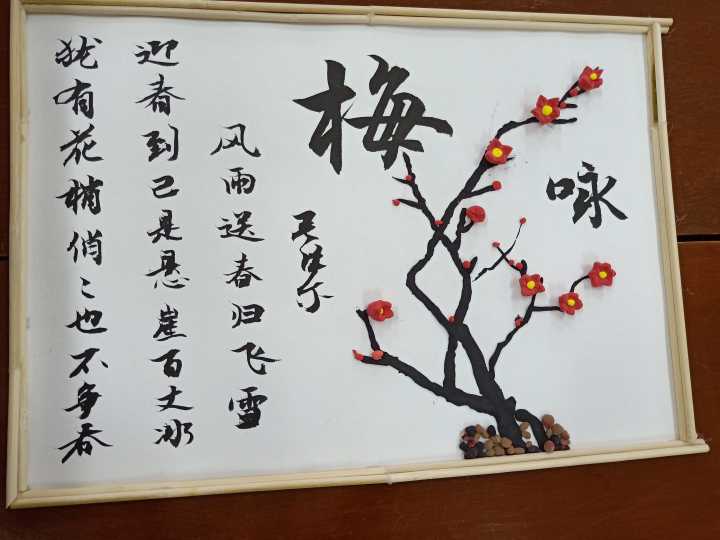 咏
梅
风雨送春归飞雪
迎春到已是悬崖百丈冰
犹有花梢俏〻也不争春